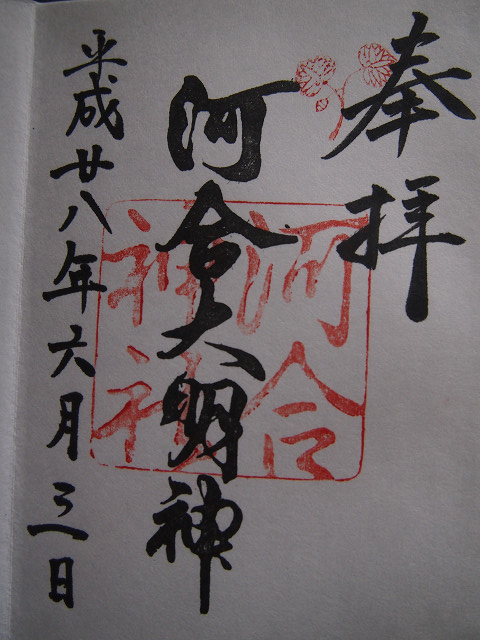 奉拝
河合大明神
河合
神社
平成廿八年六月三日